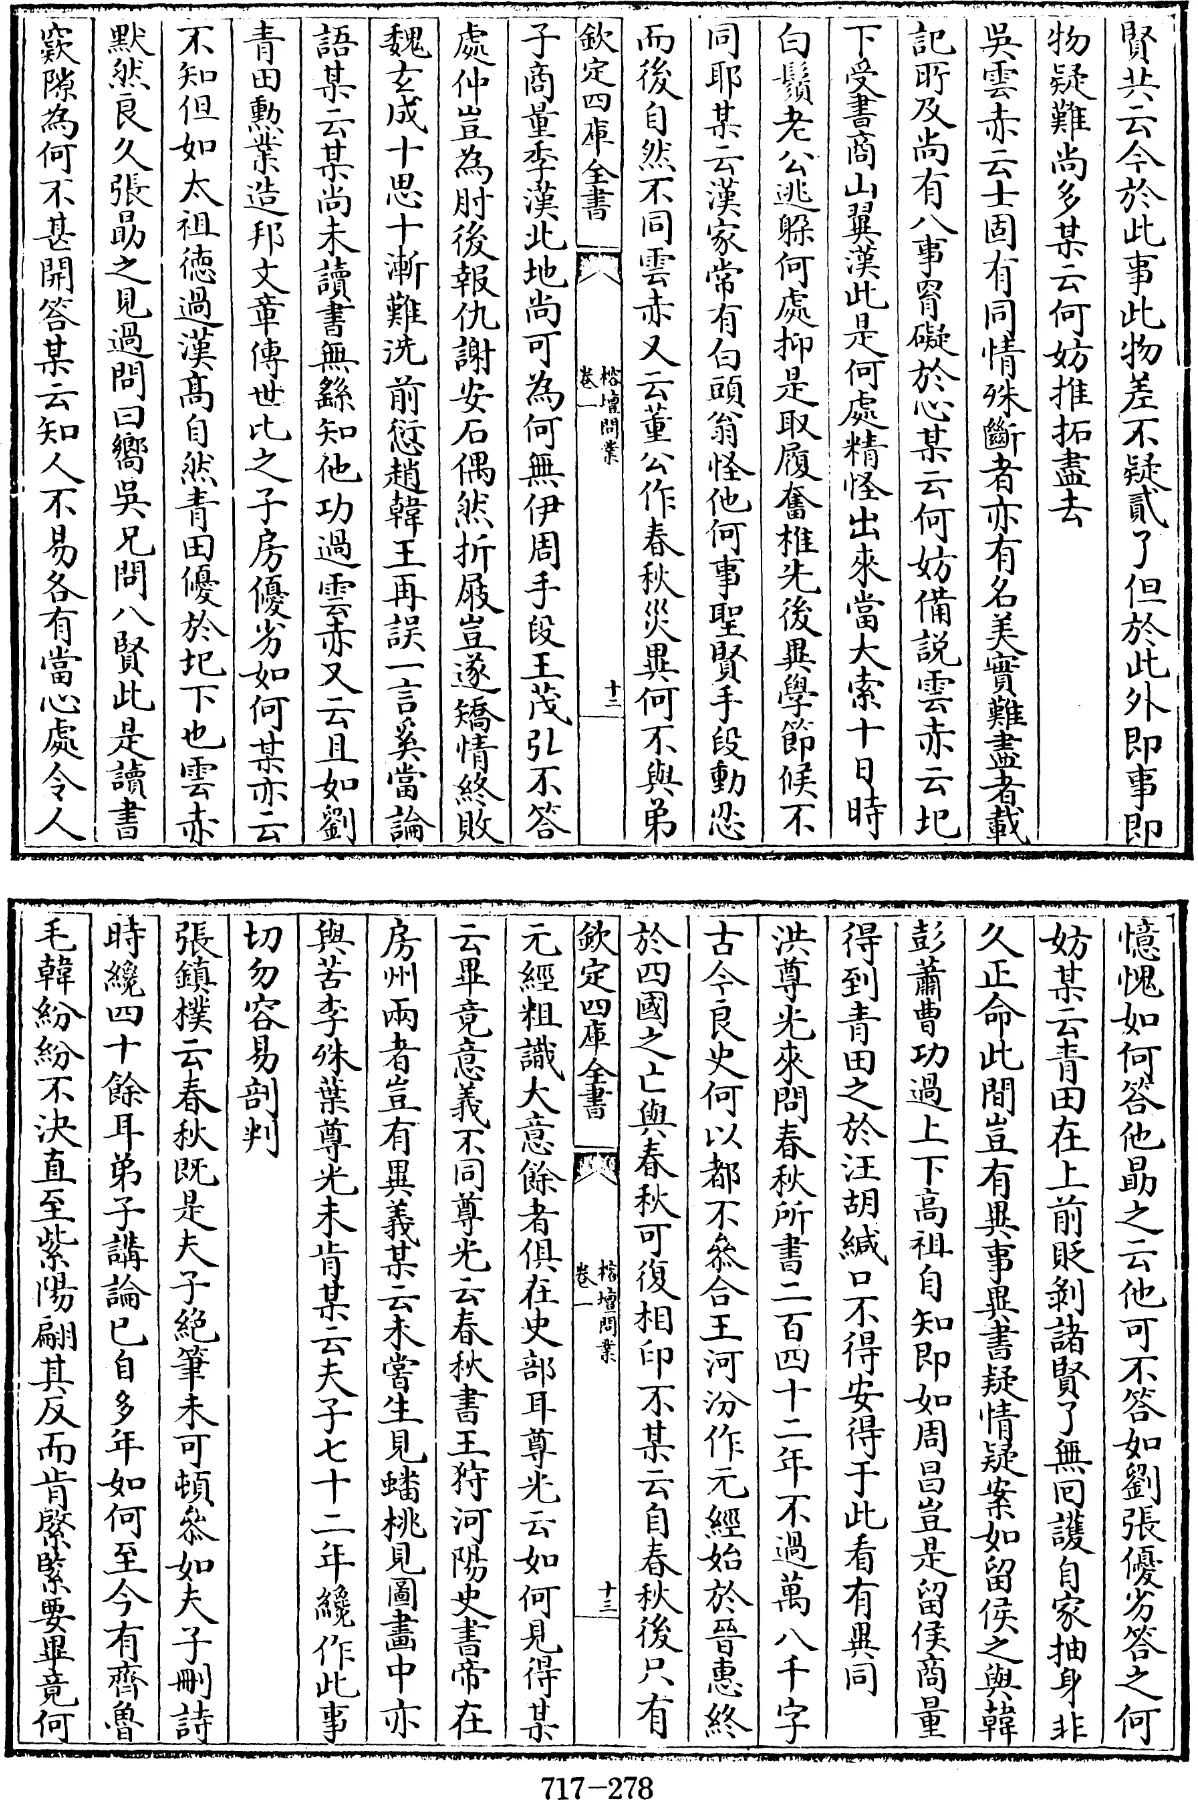 賢共云今於此事此物差不疑貳了但於此外即事即
物疑難尚多某云何妨推拓盡去
吳雲赤云士固有同情殊斷者亦有名美實難盡者載
記所及尚有八事窅礙於心某云何妨備説雲赤云圯
下受書商山翼漢此是何處精怪出來當大索十日時
白鬚老公逃躲何處抑是取履奮椎先後異學節候不
同耶某云漢家常有白頭翁怪他何事聖賢手段動忍
而後自然不同雲赤又云董公作春秋災異何不與弟
欽定四庫全書
榕壇問業
卷一
十二
子商量季漢北地尚可為何無伊周手段王茂弘不答
處仲豈為肘後報仇謝安石偶然折屐豈遂矯情終敗
魏玄成十思十漸難洗前愆趙韓王再誤一言奚當論
語某云某尚未讀書無繇知他功過雲赤又云且如劉
青田勲業造邦文章傳世比之子房優劣如何某亦云
不知但如太祖徳過漢髙自然青田優於圯下也雲赤
默然良久張勗之見過問曰嚮吳兄問八賢此是讀書
窾隙為何不甚開答某云知人不易各有當心處令人
憶愧如何答他勗之云他可不答如劉張優劣答之何
妨某云青田在上前貶剝諸賢了無囘護自家抽身非
久正命此間豈有異事異書疑情疑案如留侯之與韓
彭蕭曹功過上下高祖自知即如周昌豈是留侯商量
得到青田之於汪胡緘口不得安得于此看有異同
洪尊光來問春秋所書二百四十二年不過萬八千字
古今良史何以都不叅合王河汾作元經始於晉惠終
於四國之亡與春秋可復相印不某云自春秋後只有
欽定四庫全書
榕壇問業
卷一
十三
元經粗識大意餘者俱在史部耳尊光云如何見得某
云畢竟意義不同尊光云春秋書王狩河陽史書帝在
房州兩者豈有異義某云未嘗生見蟠桃見圖畫中亦
與苦李殊葉尊光未肯某云夫子七十二年纔作此事
切勿容易剖判
張鎮樸云春秋既是夫子絶筆未可頓叅如夫子刪詩
時纔四十餘耳弟子講論已自多年如何至今有齊魯
毛韓紛紛不決直至紫陽翩其反而肯綮緊要畢竟何
717-278